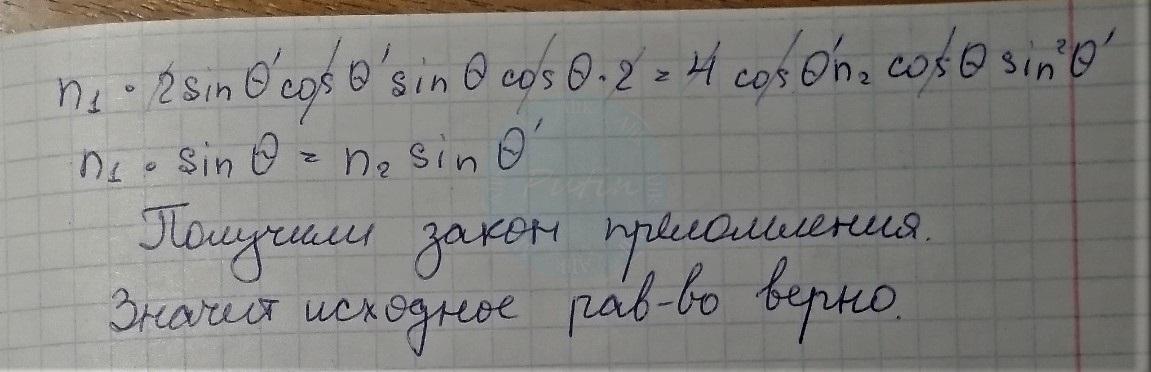 n₁ · 2 sin θ' cos θ' sin θ cos θ · 2 = 4 cos θ' n₂ cos θ sin² θ'
n₁ · sin θ = n₂ sin θ'
Получили закон преломления.
Значит исходное рав-во верно.
Putin